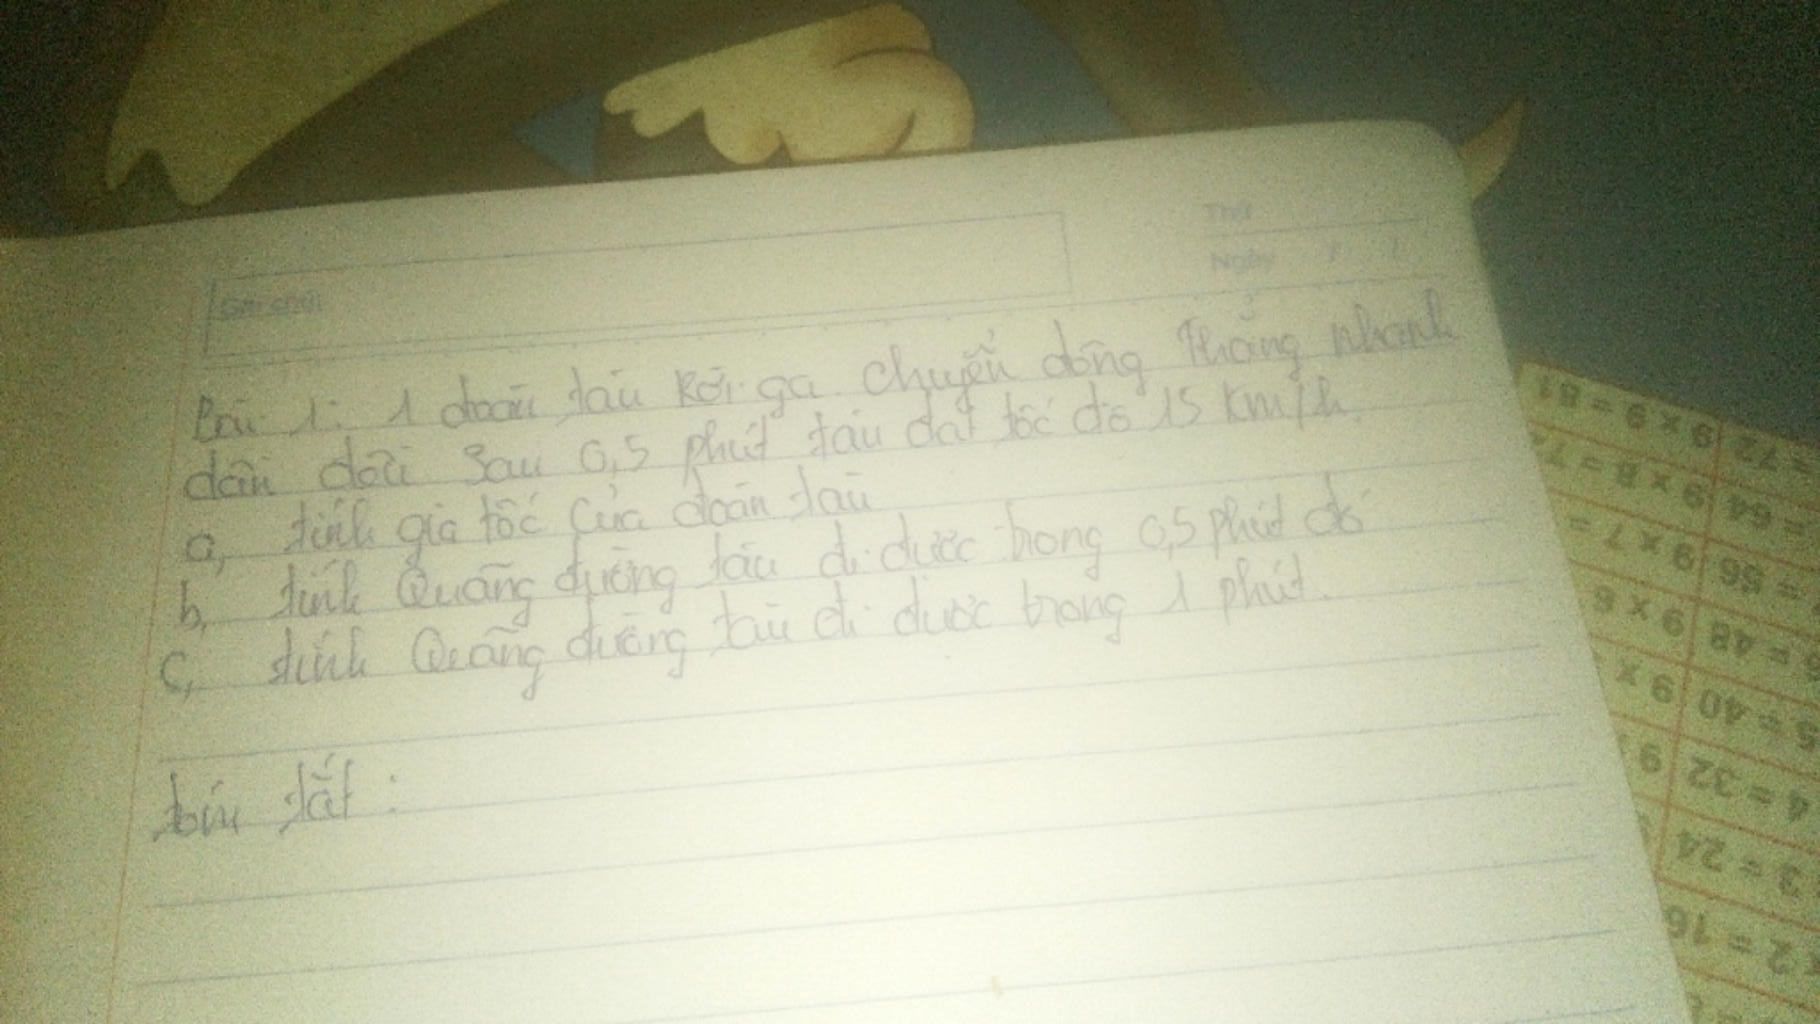 Ghi chú:
Thứ
Ngày / /
Bài 1: 1 đoàn tàu rời ga chuyển động thẳng nhanh
dần đều sau 0,5 phút tàu đạt tốc độ 15 km/h.
a, tính gia tốc của đoàn tàu
b, tính Quãng đường tàu đi được trong 0,5 phút đó
c, tính Quãng đường tàu đi được trong 1 phút.
tóm tắt:
= 72 9 x 9 = 81
= 64 9 x 8 = 7
= 56 9 x 7 =
= 48 9 x 6
= 40 9 x
4 = 32 9
3 = 24
x 2 = 16